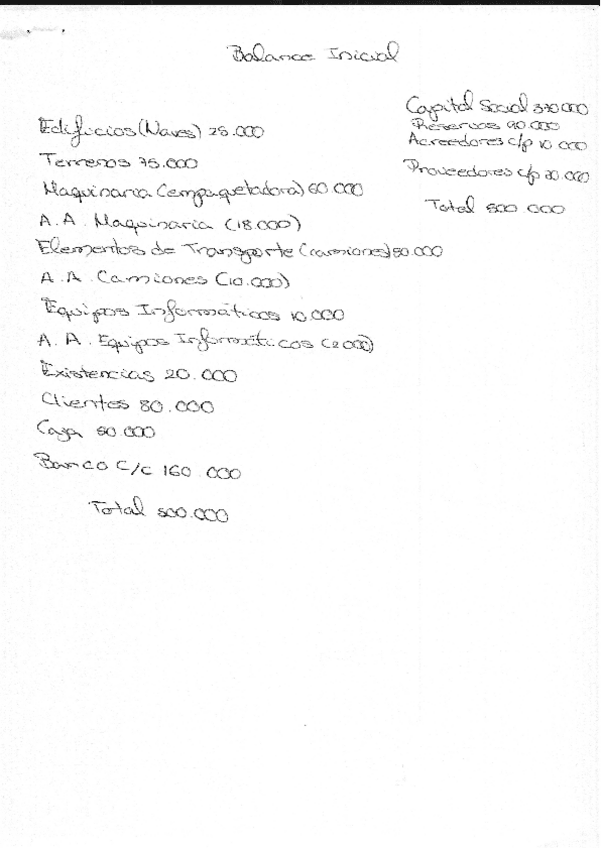 Balance Inicial
Edificios (Naves) 25.000
Terrenos 75.000
Maquinaria (empaquetadora) 60.000
A.A. Maquinaria (18.000)
Elementos de Transporte (camiones) 50.000
A.A. Camiones (10.000)
Equipos Informáticos 10.000
A.A. Equipos Informáticos (2.000)
Existencias 20.000
Clientes 80.000
Caja 50.000
Banco C/C 160.000
Total 500.000
Capital Social 370.000
Reservas 90.000
Acreedores c/p 10.000
Proveedores c/p 30.000
Total 500.000